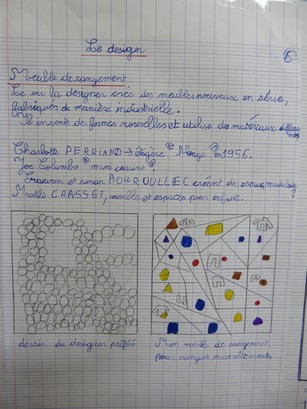 Le design
Meuble de rangement
Le ou la designer crée des meubles nouveaux en série,
fabriqués de manière industrielle.
Il invente de formes nouvelles et utilise des matériaux
Charlotte PERRIAND → étagère " Nuage " en 1956.
Joe Colombo " mini cuisine "
et ronan BOUROULLEC créent des espaces
Matali CRASSET, meubles et espaces pour enfants.
dessin du designer préféré
Mon meuble de rangement
pour ranger mes vêtements